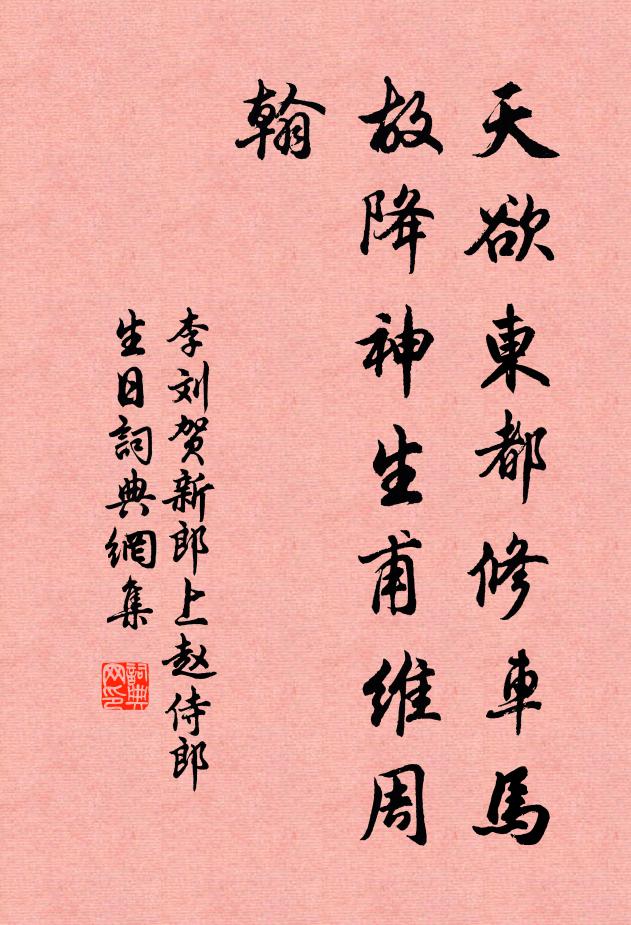 天欲東都修車馬
故降神生甫維周
翰
李刘贺新郎上赵侍郎
生日詞典網集
詞典
网印